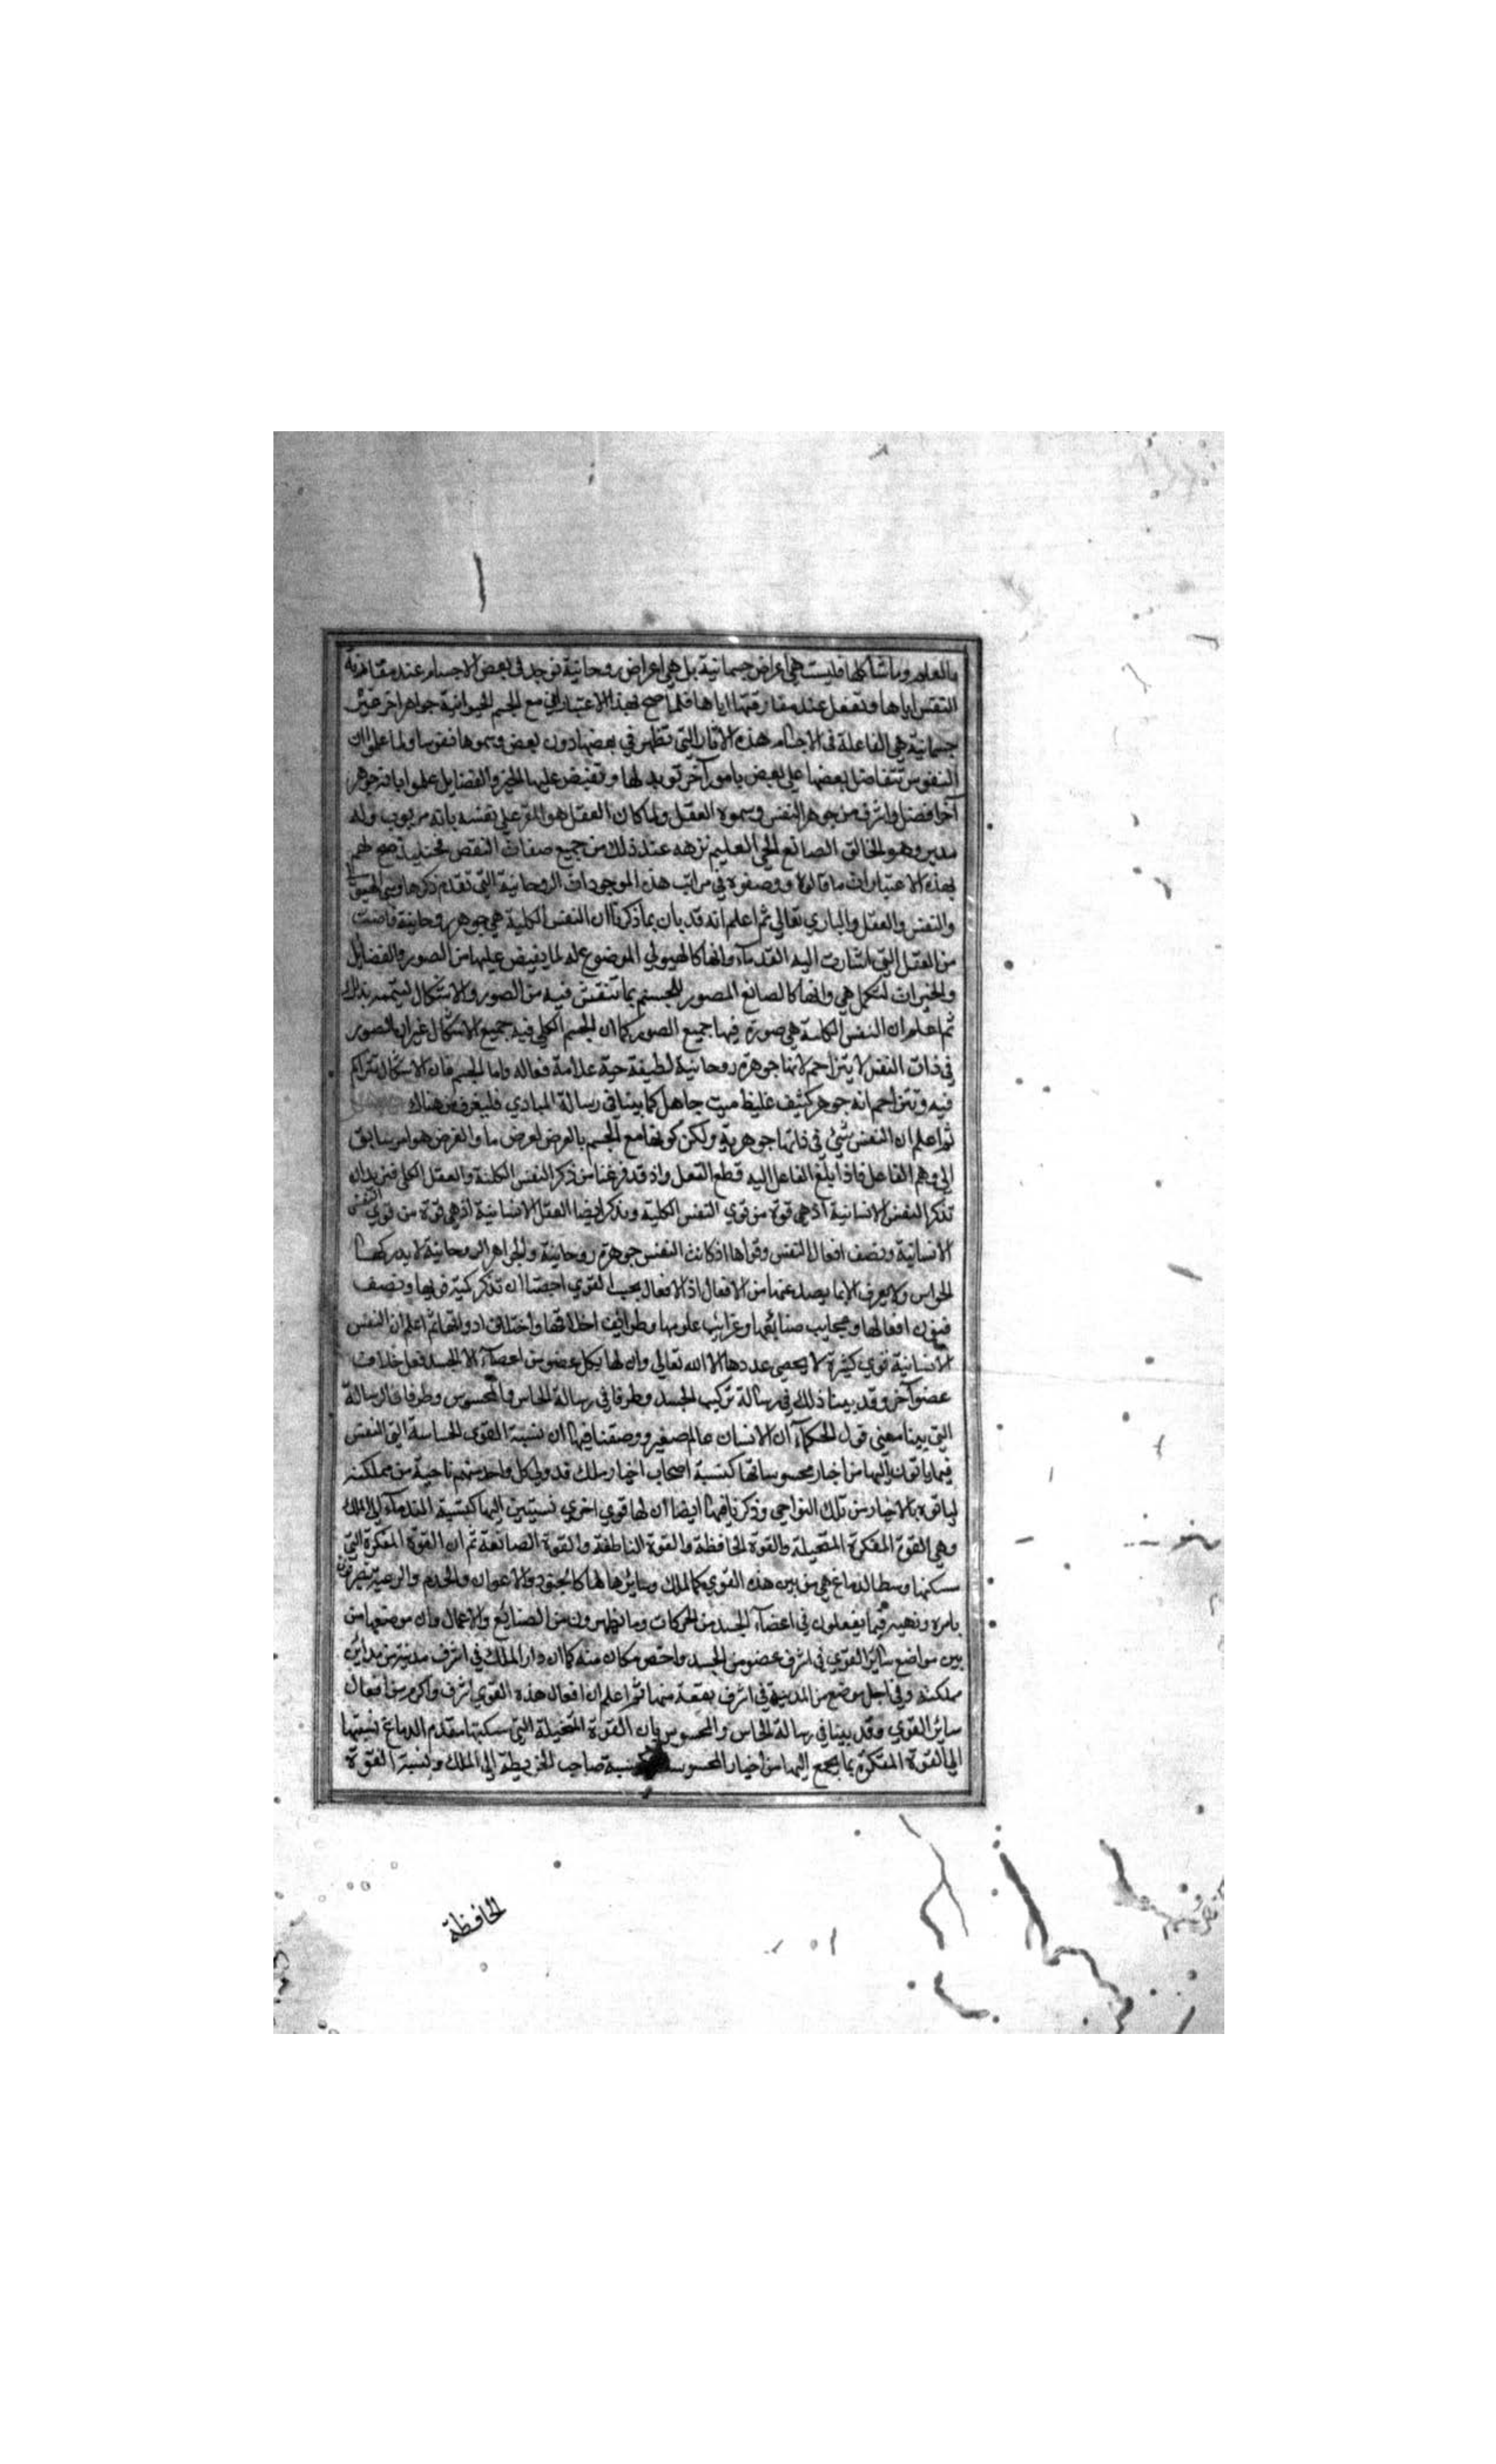 والعلوم وما شاكلها فليست هي اعراض جسمانية بل هي اعراض روحانية توجد في بعض الاجسام عند مقارنة
النفس اياها وتضمحل عند مفارقتها اياها فلما صح بهذا الاعتبار ان مع الجسم الحيوانية جواهر اخر غير
جسمانية هي الفاعلة في الاجسام هذه الاثار التي تظهر في بعضها دون بعض وسموها نفوسا ولما علموا ان
النفوس تتفاضل بعضها علي بعض بامور آخر تويد لها وتفيض عليها الخير والفضايل علموا بانه جوهر
آخر افضل واشرف من جوهر النفس وسموه العقل ولما كان العقل هو المقر علي نفسه بانه مربوب وله
مدبر وهو الخالق الصانع الحي العليم نزهه عند ذلك من جميع صفات النقص فحينيذ صح لهم
بهذه الاعتبارات ما قالوه ووصفوه في مراتب هذه الموجودات الروحانية التي تقدم ذكرها وهي الهيولي
والنفس والعقل والباري تعالي ثم اعلم انه قد بان بما ذكرنا ان النفس الكلية هي جوهر روحانية فاضت
من العقل التي اشارت اليه القدمآء وانها كالهيولي الموضوع له لما يفيض عليها من الصور والفضايل
والخيرات لتكمل هي وانها كالصانع المصور للجسم بما تنقش فيه من الصور والاشكال ليتممه بذلك
ثم اعلم ان النفس الكلية هي صورة فيها جميع الصور كما ان الجسم الكلي فيه جميع الاشكال غير ان الصور
في ذات النفس لا يتزاحم لانها جوهرة روحانية لطيفة حية علامة فعاله واما الجسم فان الاشكال تتراكم
فيه وتتزاحم انه جوهر كثيف غليظ ميت جاهل كما بينا في رسالة المبادي فليعرف من هناك
ثم اعلم ان النفس شيئ في ذاتها جوهرية ولكن كونها مع الجسم بالعرض لغرض ما والغرض هو امر سابق
الي وهم الفاعل فاذا بلغ الفاعل اليه قطع الفعل واذ قد فرغنا من ذكر النفس الكلية والعقل الكلي فنريد ان
نذكر النفس الانسانية اذ هي قوة من قوي النفس الكلية ونذكر ايضا العقل الانسانية اذ هي قوة من قوي النفس
الانسانية ونصف افعال النفس وقواها اذ كانت النفس جوهرة روحانية والجواهر الروحانية لا يدركها
الحواس ولا يعرف الا بما يصدر عنها من الافعال اذ الافعال بحسب القوي احتجنا ان نذكر كمية قواها ونصف
فنون افعالها وعجايب صنايعها وغرايب علومها وطرايف اخلاقها واختلاف ادواتها ثم اعلم ان النفس
الانسانية قوي كثيرة لا يحصي عددها الا الله تعالي وان لها بكل عضو من اعضآء الجسد فعل خلاف
عضو آخر وقد بينا ذلك في رسالة تركيب الجسد وطرفا في رسالة الحاس والمحسوس وطرفا في الرسالة
التي بينا معني قول الحكمآء ان الانسان عالم صغير ووصفنا فيها ان نسبة القوي الحساسة التي النفس
فيما ياتون اليها من اخبار محسوساتها كنسبة اصحاب اخبار ملك قد ولي كل واحد منهم ناحية من مملكته
لياتوه بالاخبار من تلك النواحي وذكرنا فيها ايضا ان لها قوي اخري نسبتهن اليها كنسبة الندمآء الي الملك
وهي القوة المفكرة المتخيلة والقوة الحافظة والقوة الناطقة والقوة الصانعة ثم ان القوة المفكرة التي
مسكنها وسط الدماغ هي من بين هذه القوي كالملك وسائرها لها كالجنود والاعوان والخدم والرعية يتصرفون
بامره ونهيه فيما يفعلون في اعضآء الجسد من الحركات وما يظهرون من الصنايع والاعمال وان موضعها من
بين مواضع سائر القوي في اشرف عضو من الجسد واخص مكان منه كما ان دار الملك في اشرف مدينة من مداين
مملكته وفي اجل موضع من المدينة في اشرف بقعة منها ثم اعلم ان افعال هذه القوي اشرف واكرم من افعال
سائر القوي وقد بينا في رسالة الحاس والمحسوس بان القوة المتخيلة التي مسكنها مقدم الدماغ نسبتها
الي القوة المفكرة بما يجمع اليها من اخبار المحسوسات كنسبة صاحب الخريطة الي الملك ونسبة القوة
الحافظة